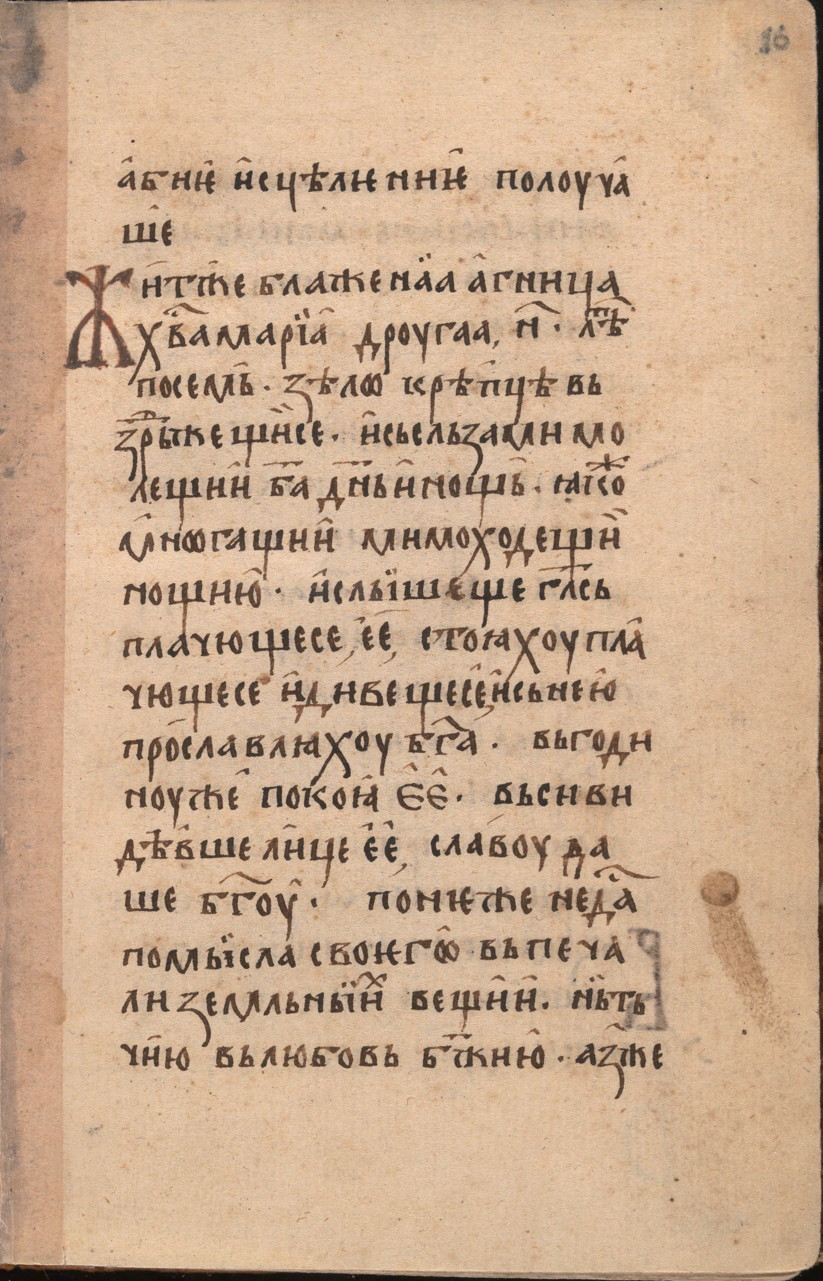 16
а҆биѥ҆ и҆сцѣлѥниѥ҆ полоуча҆
ше҆
Жит же блаженаꙗ а҆гница
х҃ва мариꙗ дроугаа, н҃. лѣ҃т
посемь. зѣлѡ крѣпцѣ вь
здрьжещи се. и сьсльзами мо
лещи б҃а д҃нь и нощь. ꙗкоже
мнѡгащи мимоходещи
нощию. и слышеще гл҃сь
плачющесе ѥе, стоꙗхоу пла
чющесе и дивещесе, и сь нею
прославлꙗхоу б҃га. вь годи
ноу же покоꙗ ѥе. вьси ви
дѣвше лице ѥе, славоу да
ше б҃гоу. понѥже не да
помысла своѥгѡ вь печа
ли земльныих вещии. нь ть
чию вь любовь б҃жию. аз же